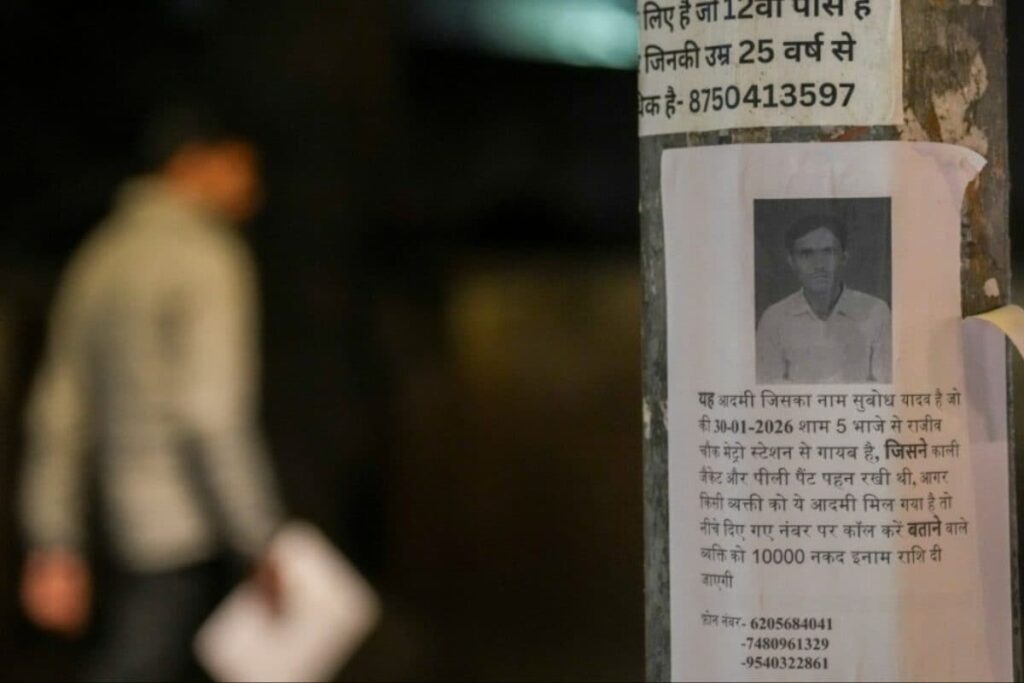 लिए है जो 12वी पास है
जिनकी उम्र 25 वर्ष से
धिक है- 8750413597
यह आदमी जिसका नाम सुबोध यादव है जो
की 30-01-2026 शाम 5 भाजे से राजीव
चौक मेट्रो स्टेशन से गायब है, जिसने काली
जैकेट और पीली पैंट पहन रखी थी, आगर
किसी व्यक्ती को ये आदमी मिल गया है तो
नीचे दिए गए नंबर पर कॉल करें बताने वाले
व्यक्ति को 10000 नकद इनाम राशि दी
जाएगी
फ़ोन नंबर- 6205684041
-7480961329
-9540322861